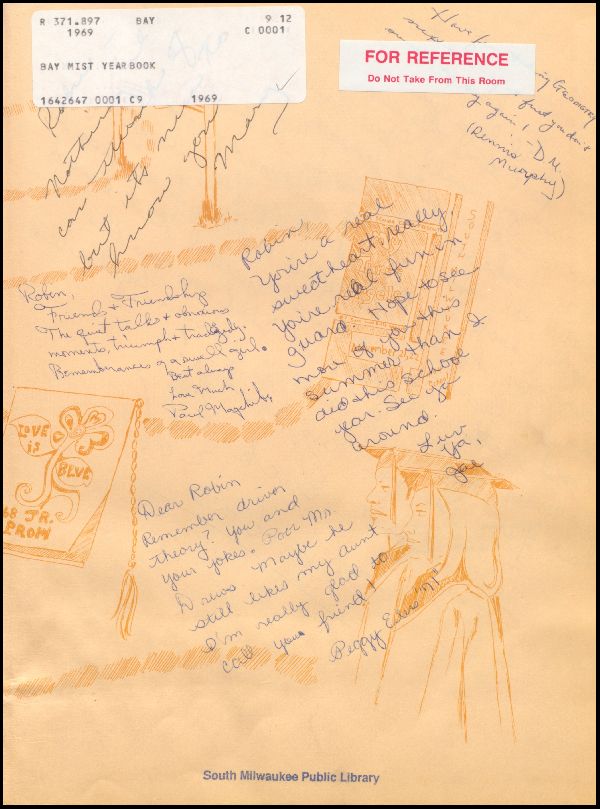 R 371.897 BAY 9 12
1969 C 0001
BAY MIST YEARBOOK
1642647 0001 C9 1969
FOR REFERENCE
Do Not Take From This Room
Have
again! - D.M.
(Dennis
Murphy)
Nothing
can
but it's
know you
Robin
You're a real
sweetheart, really.
You're real fun in
guard. Hope to see
more of you this
summer than I
did this school
year. See ya
around.
Luv
Ya,
Robin,
Friends & Friendship
The quiet talks & obvious
moments, triumph & tradgedy.
Remembrances of a swell girl.
Best always
Love Much
Paul
LOVE
is
BLUE
68 JR.
PROM
Dear Robin
Remember driver
theory? You and
your jokes. Poor Mr.
Drews maybe he
still likes my aunt
I'm really glad to
call you friend!
Peggy "71"
South Milwaukee Public Library